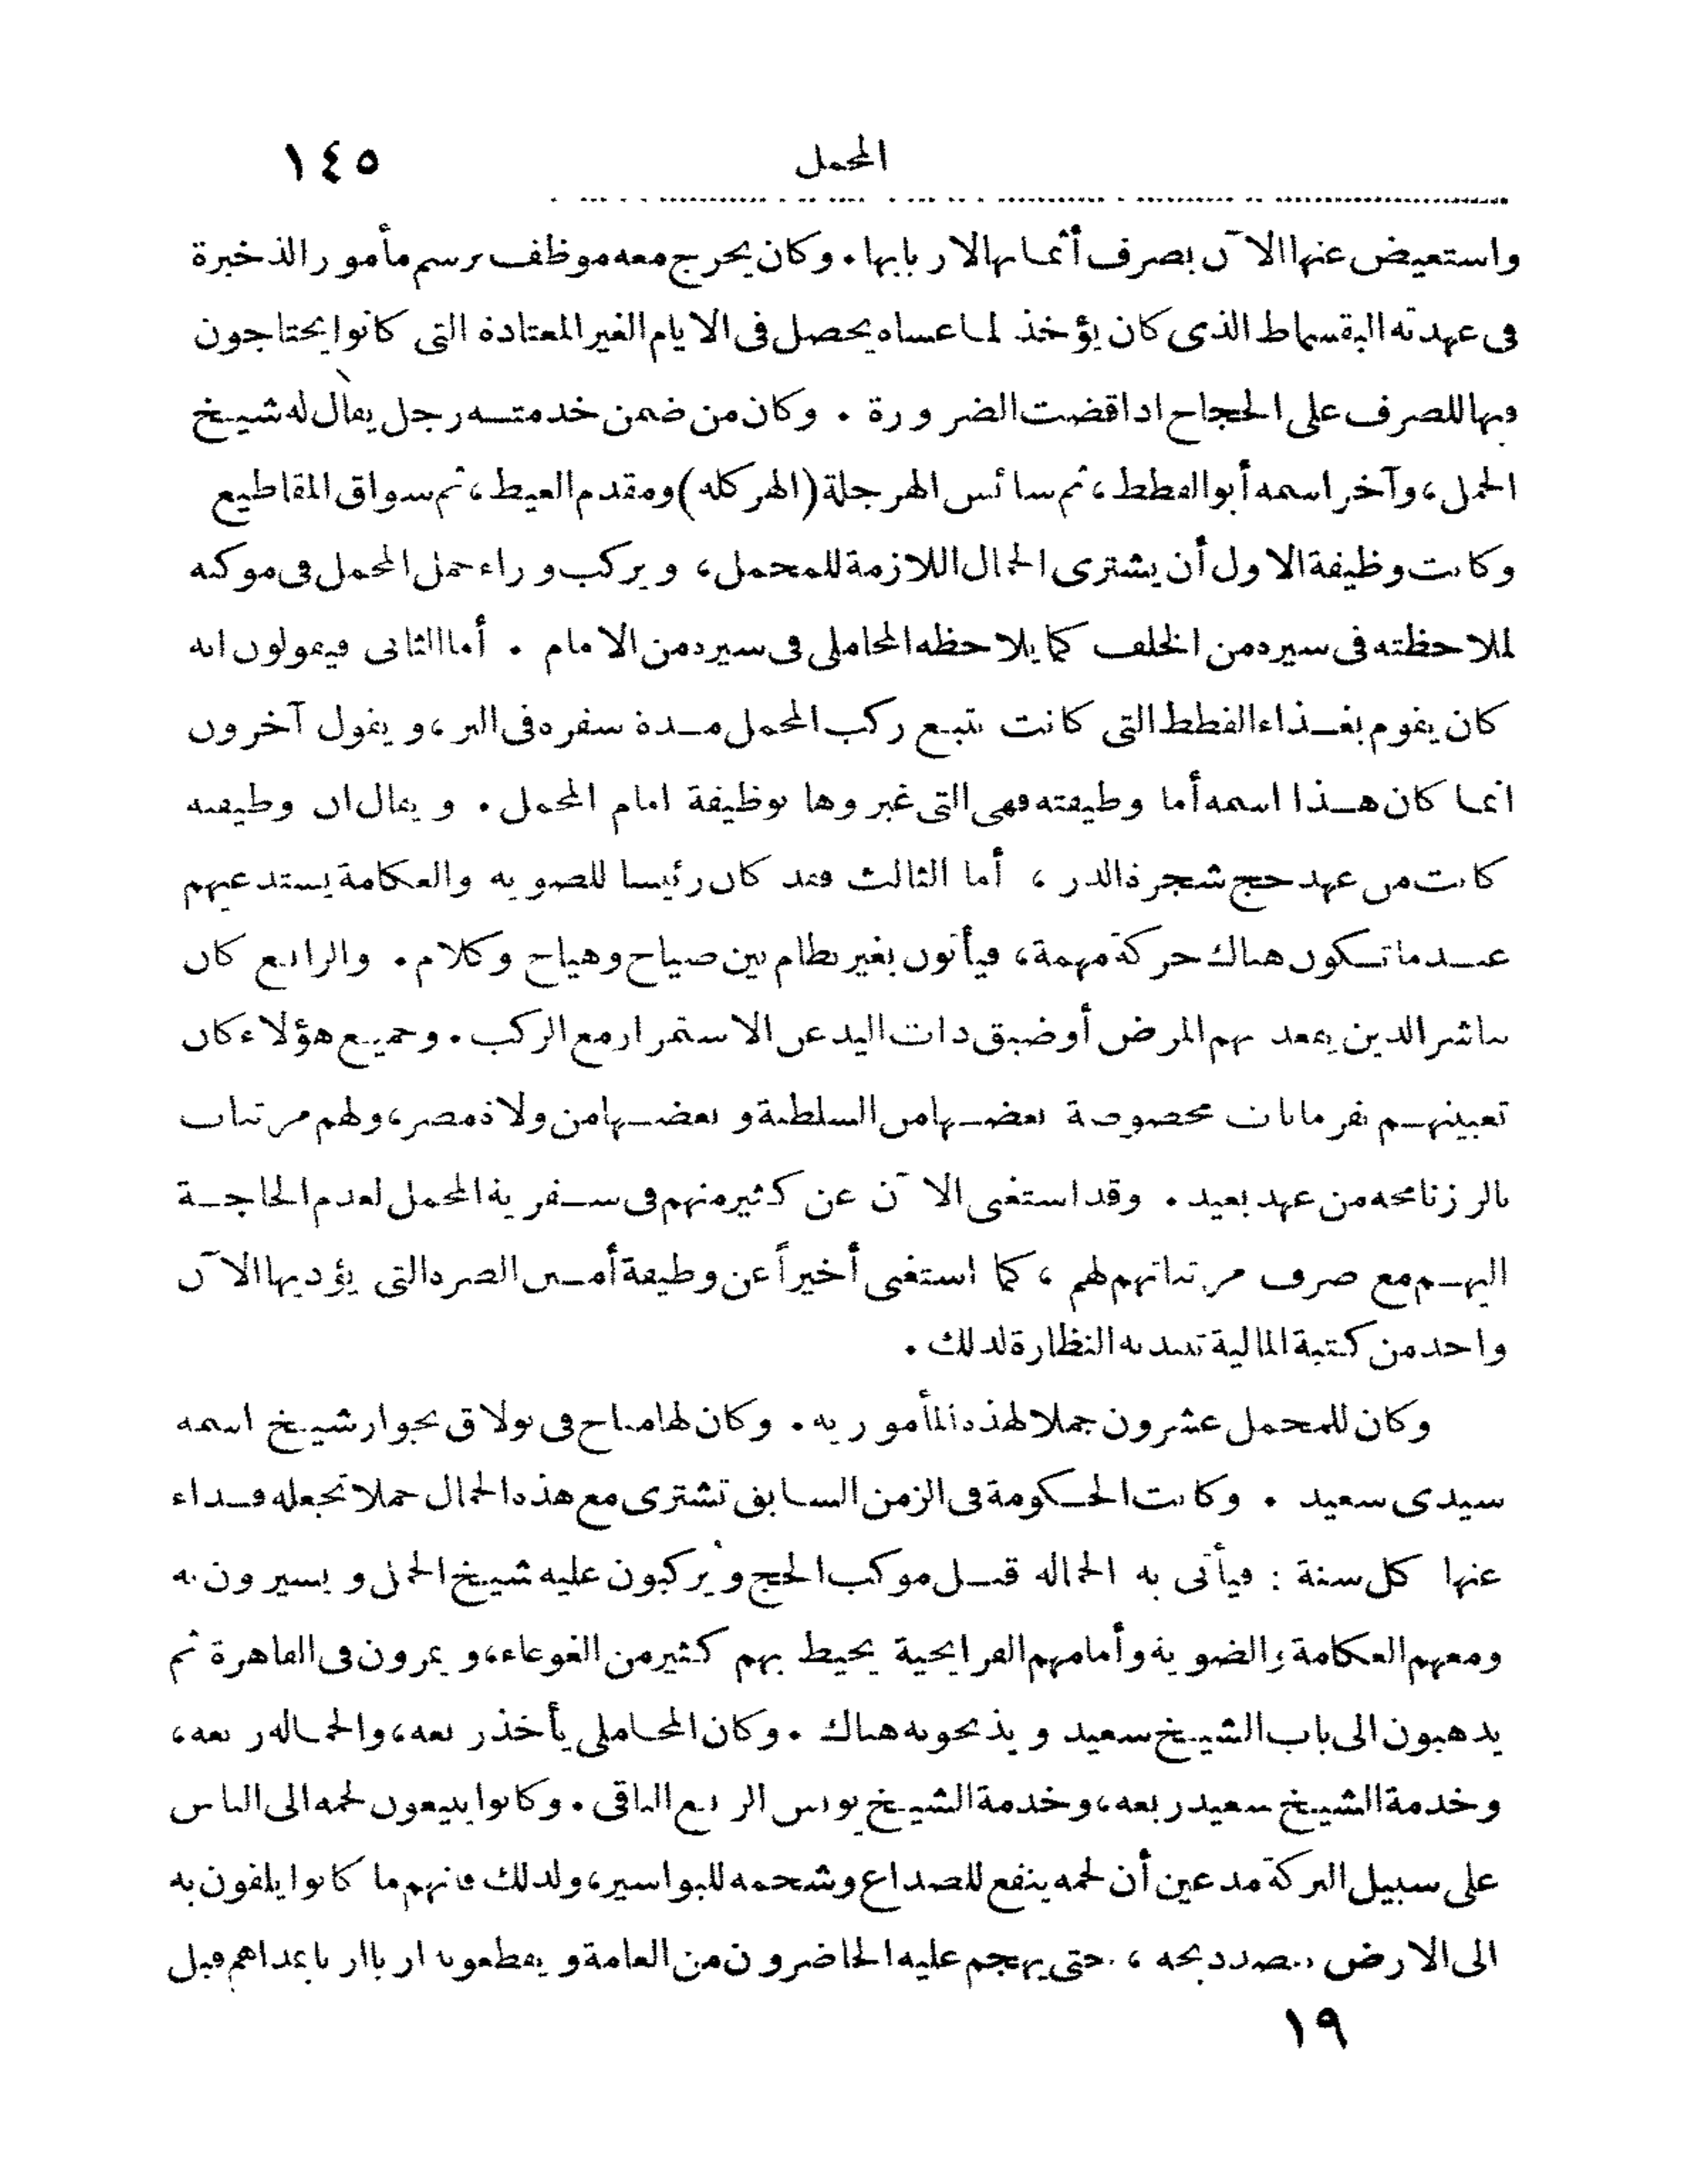 المحمل ١٤٥
واستعيض عنها الآن بصرف أثمانها لاربابها. وكان يخرج معه موظف برسم مأمور الذخيرة
فى عهدته البقسماط الذى كان يؤخذ لما عساه يحصل فى الايام الغير المعتادة التى كانوا يحتاجون
فيها للصرف على الحجاج اذا قضت الضرورة . وكان من ضمن خدمته رجل يقال له شيخ
الجمل، وآخر اسمه أبو القطط، ثم سائس الهرجلة (الهركله) ومقدم الغيط، ثم سواق المقاطيع
وكانت وظيفة الاول أن يشترى الجمال اللازمة للمحمل، ويركب وراء جمل المحمل فى موكبه
لملاحظته فى سيره من الخلف كما يلاحظه المحاملى فى سيره من الامام . أما الثانى فيقولون انه
كان يقوم بغذاء القطط التى كانت تتبع ركب المحمل مدة سفره فى البر، ويقول آخرون
انما كان هذا اسمه أما وظيفته فهى التى غيروها بوظيفة امام المحمل . ويقال ان وظيفته
كانت من عهد حج شجرة الدر ، أما الثالث فقد كان رئيسا للضويه والعكامة يستدعيهم
عندما تكون هناك حركة مهمة، فيأتون بغير نظام بين صياح وهياج وكلام. والرابع كان
يباشر الذين يقعد بهم المرض أو ضيق ذات اليد عن الاستمرار مع الركب. وجميع هؤلاء كان
تعيينهم بفرمانات مخصوصة بعضها من السلطنة وبعضها من ولاة مصر، ولهم مرتبات
بالرزنامجه من عهد بعيد . وقد استغنى الآن عن كثير منهم فى سفرية المحمل لعدم الحاجة
اليهم مع صرف مرتباتهم لهم ، كما استغنى أخيراً عن وظيفة أمين الصرة التى يؤديها الآن
واحد من كتبة المالية تنتدبه النظارة لذلك .
وكان للمحمل عشرون جملا لهذه المأموريه. وكان لها مناخ فى بولاق بجوار شيخ اسمه
سيدى سعيد . وكانت الحكومة فى الزمن السابق تشترى مع هذه الجمال جملا تجعله فداء
عنها كل سنة : فيأتى به الجماله قبل موكب الحج ويُركبون عليه شيخ الجمل ويسيرون به
ومعهم العكامة والضوية وأمامهم القرايحية يحيط بهم كثير من الغوغاء، ويمرون فى القاهرة ثم
يذهبون الى باب الشيخ سعيد ويذبحونه هناك . وكان المحاملى يأخذ ربعه، والجماله ربعه،
وخدمة الشيخ سعيد ربعه، وخدمة الشيخ يونس الربع الباقى . وكانوا يبيعون لحمه الى الناس
على سبيل البركة مدعين أن لحمه ينفع للصداع وشحمه للبواسير، ولذلك فانهم ما كانوا يلقون به
الى الارض بقصد ذبحه ، حتى يهجم عليه الحاضرون من العامة ويقطعونه اربا اربا بمداهم قبل
١٩